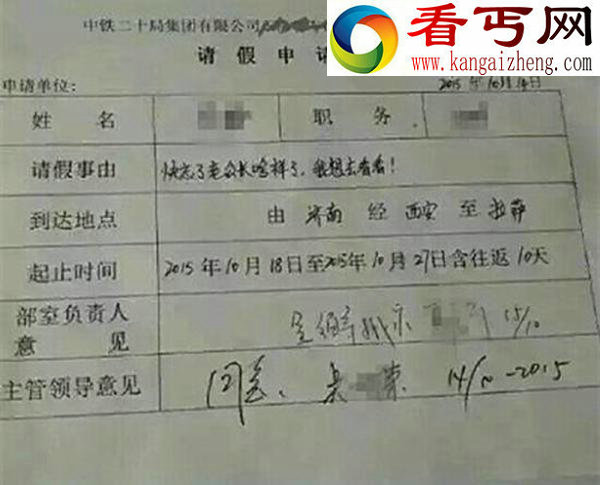 中铁二十局集团有限公司
看丐网
www.kangaizheng.com
请假申请
申请单位:
2015年10月14日
姓名 职务
请假事由 快忘了老公长啥样了,我想去看看!
到达地点 由济南经西安至拉萨
起止时间 2015年10月18日至2015年10月27日含往返10天
部室负责人
意见 15/10
主管领导意见 同意. 14/10-2015